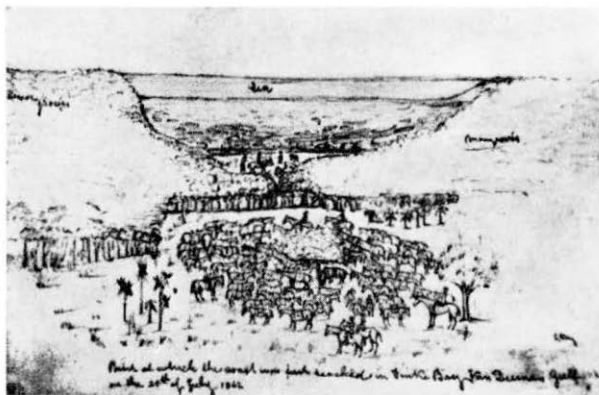 Sea
Mangroves
Mangroves
Point at which the coast was first reached in Finke Bay Van Diemens Gulf
on the of July 1862